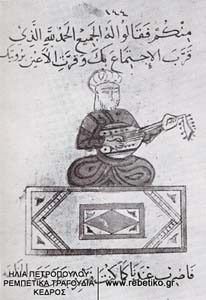 ١٤٤
منكم فقالوا له الجميع الحمد لله الذى
قرب الاجتماع بك وقرت الاعين برويتك
ΗΛΙΑ ΠΕΤΡΟΠΟΥΛΟΥ
ΡΕΜΠΕΤΙΚΑ ΤΡΑΓΟΥΔΙΑ
ΚΕΔΡΟΣ
www.rebetiko.gr